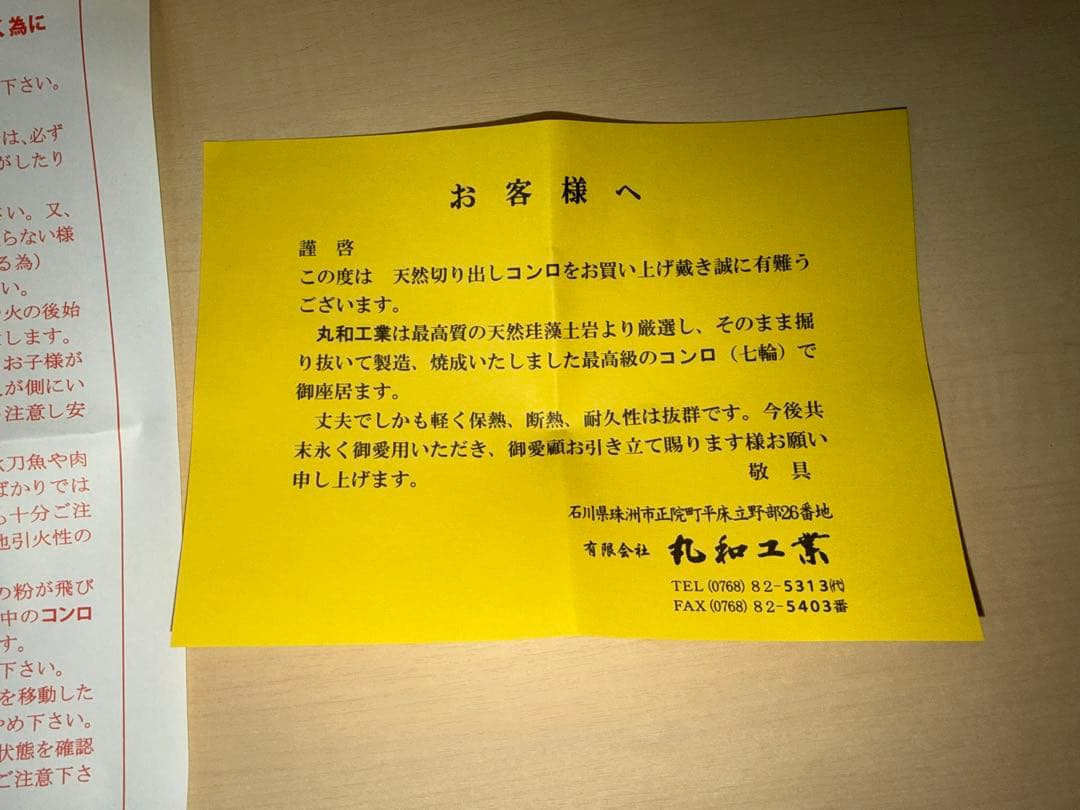 く為に
下さい。
は、必ず
がしたり
い。又、
らない様
る為）
い。
火の後始
します。
お子様が
が側にい
注意し安
太刀魚や肉
ばかりでは
十分ご注
他引火性の
の粉が飛び
中のコンロ
す。
下さい。
を移動した
やめ下さい。
状態を確認
ご注意下さ
お客様へ
謹啓
この度は　天然切り出しコンロをお買い上げ戴き誠に有難う
ございます。
丸和工業は最高質の天然珪藻土岩より厳選し、そのまま掘
り抜いて製造、焼成いたしました最高級のコンロ（七輪）で
御座居ます。
丈夫でしかも軽く保熱、断熱、耐久性は抜群です。今後共
末永く御愛用いただき、御愛顧お引き立て賜ります様お願い
申し上げます。　敬具
石川県珠洲市正院町平床立野部26番地
有限会社 丸和工業
TEL (0768) 82-5313㈹
FAX (0768) 82-5403番